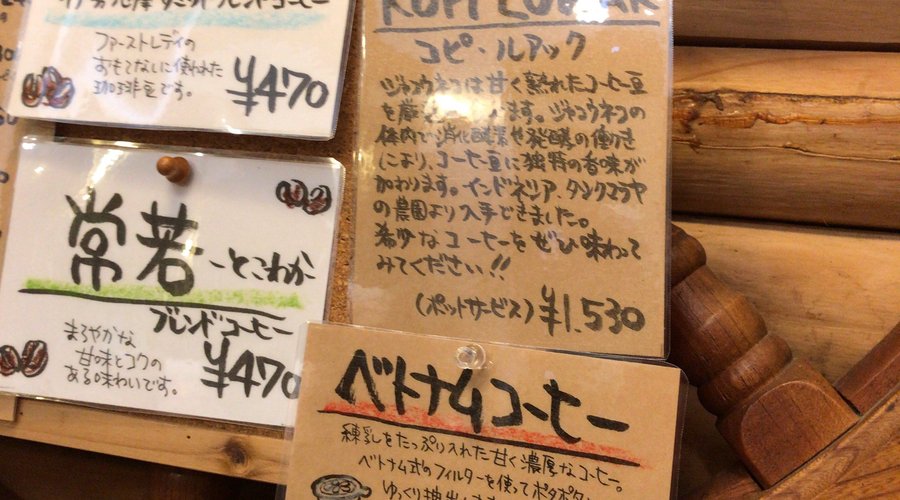 伊勢志摩サミットブレンドコーヒー
ファーストレディの
おもてなしに使われた
珈琲豆です。
¥470
常若-とこわか
ブレンドコーヒー
まろやかな
甘味とコクの
ある味わいです。
¥470
KOPI LUWAK
コピ・ルアック
ジャコウネコは甘く熟れたコーヒー豆
を います。ジャコウネコの
体内で消化酵素や発酵の働き
により、コーヒー豆に独特の香味が
加わります。インドネシア、タンクマラヤ
の農園より入手できました。
希少なコーヒーをぜひ味わって
みてください!!
(ポットサービス)¥1,530
ベトナムコーヒー
練乳をたっぷり入れた甘く濃厚なコーヒー。
ベトナム式のフィルターを使ってポタポタ
ゆっくり抽出